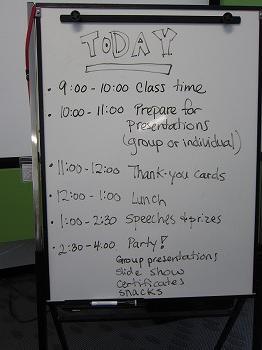 TODAY
• 9:00 - 10:00 Class time
• 10:00 - 11:00 Prepare for
presentations
(group or individual)
• 11:00 - 12:00 Thank-you cards
• 12:00 - 1:00 Lunch
• 1:00 - 2:30 Speeches & prizes
• 2:30 - 4:00 Party!
Group presentations
slide show
certificates
snacks